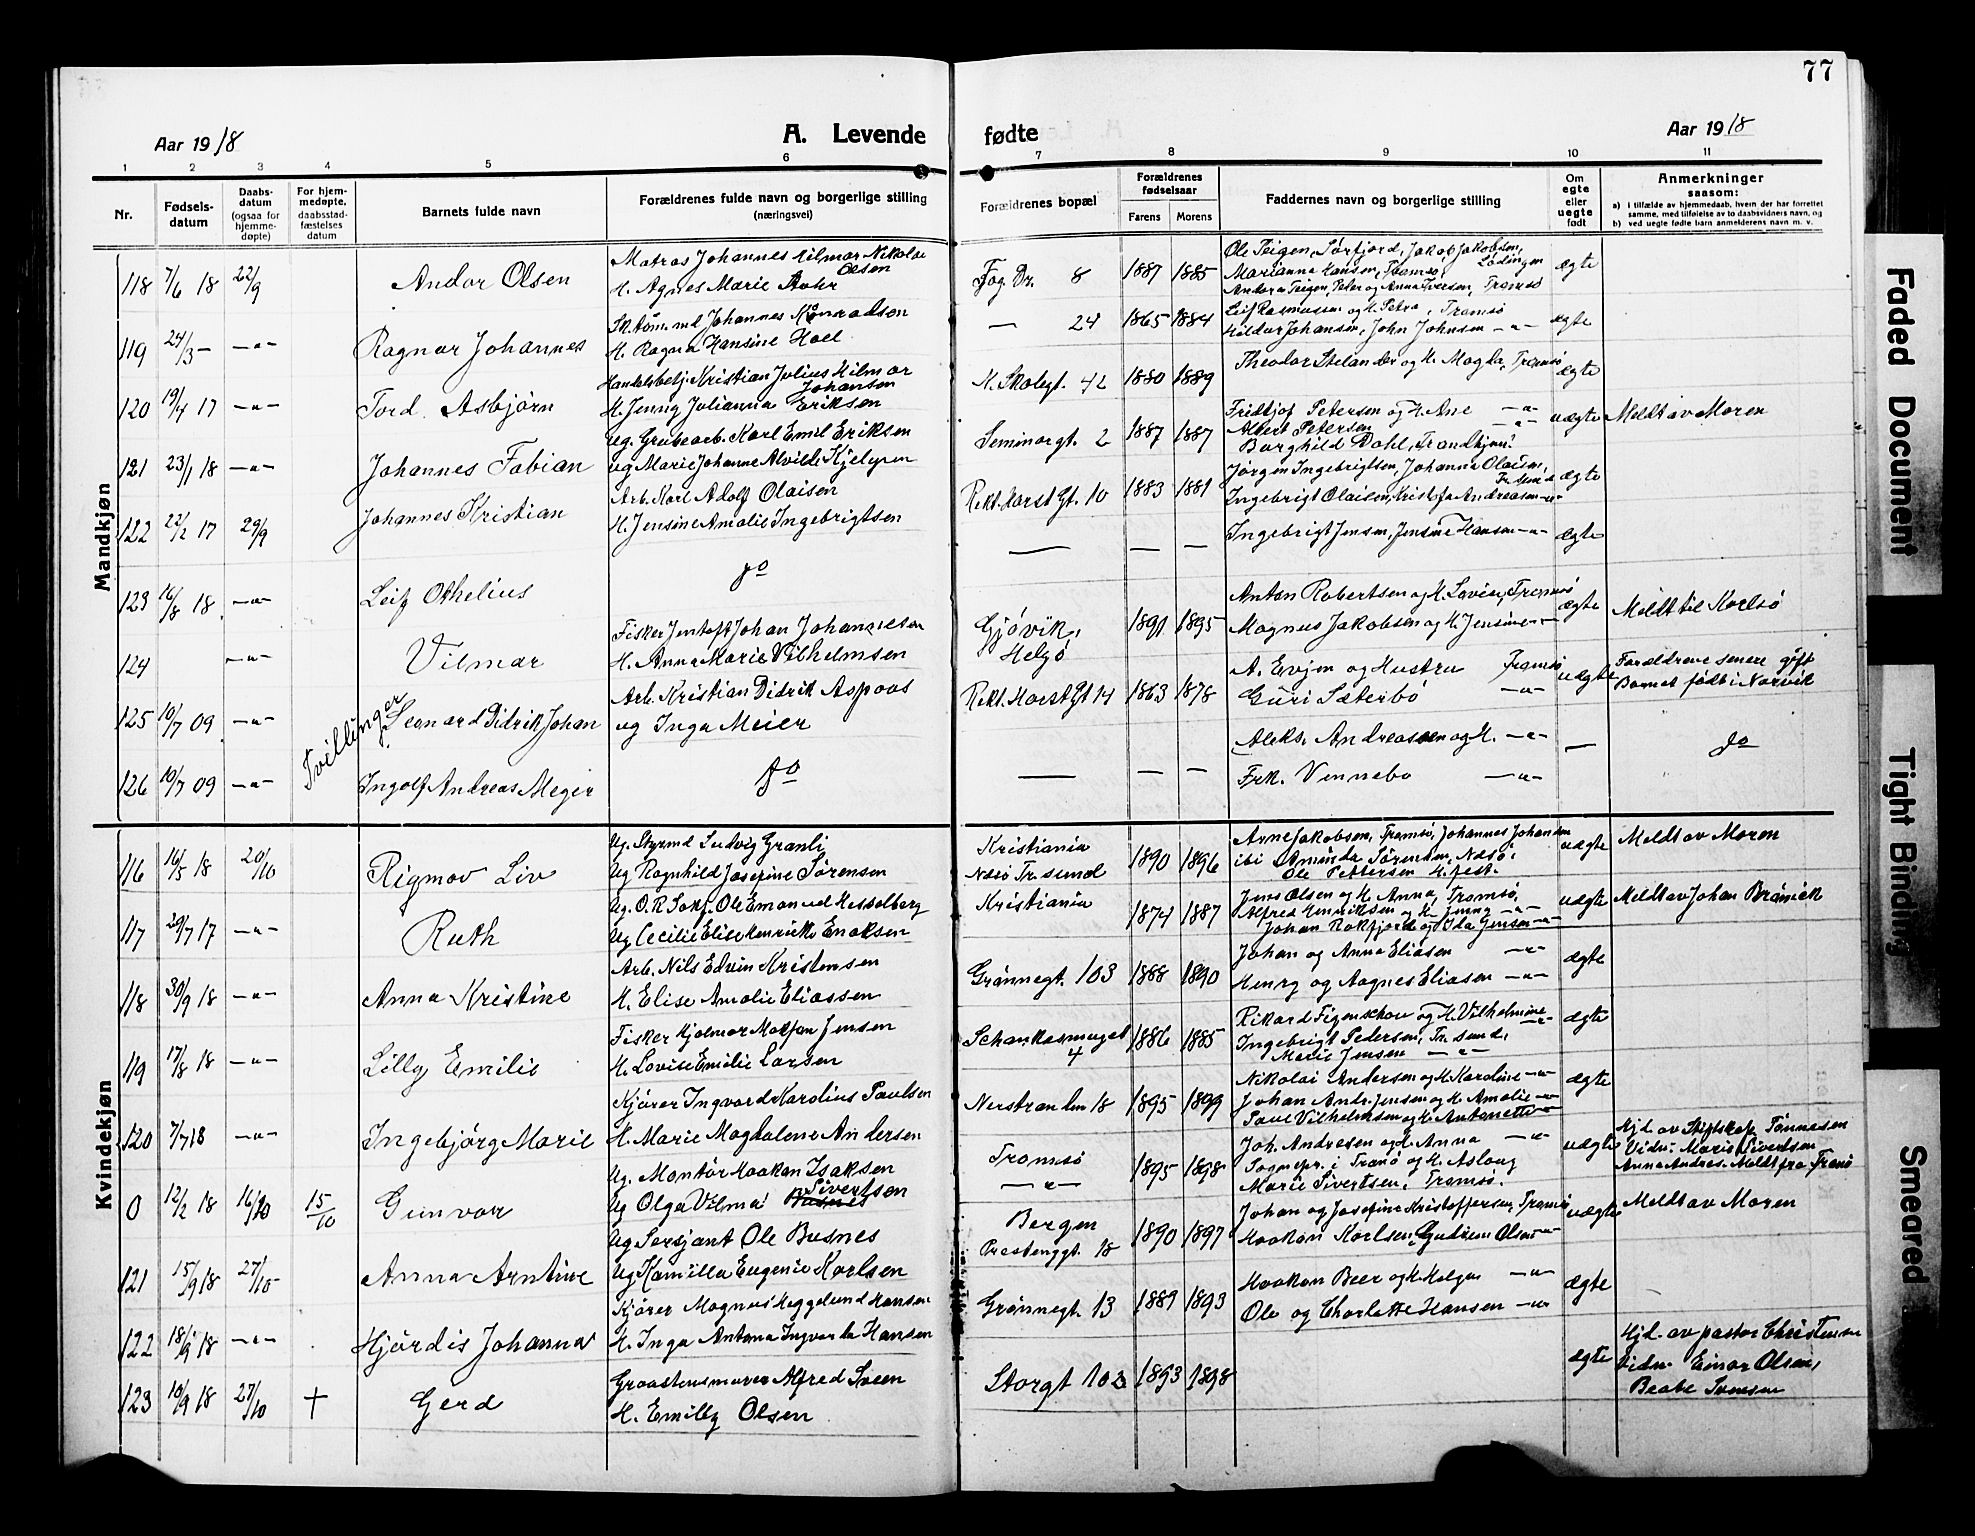 77
Aar 1918
A. Levende
fødte
Aar 1918
1 2 3 4 5 6 7 8 9 10 11
Nr.
Fødsels-
datum
Daabs-
datum
(ogsaa for
hjemme-
døpte)
For hjem-
medøpte,
daabsstad-
fæstelses
datum
Barnets fulde navn
Forældrenes fulde navn og borgerlige stilling
(næringsvei)
Forældrenes bopæl
Forældrenes
fødselsaar
Farens
Morens
Faddernes navn og borgerlige stilling
Om
egte
eller
uegte
født
Anmerkninger
saasom:
a) i tilfælde av hjemmedaab, hvem der har forrettet
samme, med tilføielse av to daabsvidners navn, og
b) ved uegte fødte barn anmelderens navn m. v.
Mandkjøn
118 7/6 18 22/9 Andor Olsen
Matros Johannes Hilmar Nikolai
Olsen
H. Agnes Marie Rohr
Fog. Dr. 8 1887 1885
Ole Teigen, Sørfjord, Jakob Jakobsen,
Lødingen
Marianna Hansen, Tromsø,
Andora Teigen, Peter og Anna Iversen, Tromsø
ægte
119 24/3 — —"— Ragnar Johannes
Sk. tøm. md Johannes Konradsen
H. Ragna Hansine Hoel
— 24 1865 1884
Leif Rasmussen og H. Petra, Tromsø
Hildur Johansen, John Johnsen —"—
ægte
120 19/4 17 —"— Tord Asbjørn
Handelsbetj. Kristian Julius Hilmar
Johansen
H. Jenny Julianna Eriksen
H. Skolegt. 42 1880 1889
Theodor Stelander og H. Magda, Tromsø
ægte
121 23/1 18 —"— Johannes Fabian
Ug. Grubearb. Karl Emil Eriksen
ug Marie Johanne Alvilde Kjelgren
Seminargt. 2 1887 1887
Fridtjof Petersen og H. Ane —"—
Albert Petersen —"—
Borghild Dahl, Trondhjem
uægte
Meldt av Moren
122 22/2 17 29/9 Johannes Kristian
Arb. Karl Adolf Olaisen
H. Jensine Amalie Ingebrigtsen
Rekt. Horst Gt. 10 1883 1881
Jørgen Ingebrigtsen, Johanna Olaisen,
Ingebrigt Olaisen, Kristofa Andreasen —"—
ægte
123 16/8 18 —"— Leif Othelius
do
— — —
Ingebrigt Jensen, Jensine Hansen —"—
ægte
124 —"— Vilmar
Fisker Jentoft Johan Johannesen
H. Anna Marie Vilhelmsen
Gjøvik,
Helgø
1891 1895
Anton Robertsen og H. Lovise, Tromsø
Magnus Jakobsen og H. Jensine —"—
ægte
Meldt til Karlsø
Tvillinger
125 10/7 09 —"— Leonard Didrik Johan
Arb. Kristian Didrik Aspaas
ug Inga Meier
Rekt. Horst Gt 14 1863 1878
A. Evjen og Hustru Tromsø
Guri Sæterbø —"—
uægte
Forældrene senere gift
Barnet født i Narvik
126 10/7 09 —"— Ingolf Andreas Meyer
do
— — —
Aleks. Andreassen og H. —"—
Frk. Vennebo —"—
—
do
Kvindekjøn
116 16/5 18 20/10 Rigmor Liv
Ug. Styrmd Ludvig Granli
Ug Ragnhild Josefine Sørensen
Kristiania
Næsø Tr.sund
1890 1896
Arne Jakobsen, Tromsø, Johannes Johansen
ibi Aminda Sørensen, Næsø,
Ole Pettersen H.fest.
uægte
Meldt av Moren
117 20/7 17 —"— Ruth
Ug. O.R.Sakf. Ole Emanuel Hesselberg
Ug Cecilie Elise Henrikke Enoksen
Kristiania
1874 1887
Jens Olsen og H. Anna, Tromsø,
Alfred Henriksen og H. Jenny —"—
Johan Rakfjord og Ida Jensen —"—
uægte
Meldt av Johan Brænick
118 30/9 18 —"— Anna Kristine
Arb. Nils Edvin Kristensen
H. Elise Amalie Eliassen
Grønnegt. 103 1888 1890
Johan og Anna Eliasen —"—
Henry og Aagnes Eliasen —"—
ægte
119 17/8 18 —"— Lilly Emilie
Fisker Hjalmar Matfan Jensen
H. Lovise Emilie Larsen
4
1886 1885
Rikard Figenschou og H. Vilhelmine —"—
Ingebrigt Pedersen, Tr.sund,
Marie Jensen —"—
ægte
120 7/7 18 —"— Ingebjørg Marie
Kjører Ingvard Karolius Paulsen
H. Marie Magdalene Andersen
Nerstranden 18 1895 1899
Nikolai Andersen og H. Karoline —"—
Johan Andr. Jensen og H. Amalie —"—
Paul Vilhelmsen og H. Antonette —"—
ægte
0 12/2 18 16/10 15/10 Gunvor
Ug. Montør Haakon Isaksen
Sivertsen
Ug Olga Vilma Busnes
Tromsø
—"—
1895 1898
Joh. Andresen og H. Anna —"—
Sognepr. i Tranø og H. Aslaug
Marie Sivertsen, Tromsø.
uægte
Hjd. av Stiftskap. Tønnesen
Vidn. Marie Sivertsen
Anna Andres. Meldt fra Tranø
121 15/9 18 27/10 Anna Arntine
Ug Sersjant Ole Busnes
Ug Kamilla Eugenie Karlsen
Bergen
Prestenggt. 18
1890 1897
Johan og Josefine Kristoffersen, Tromsø
Haakon Karlsen, Gudrun Olsen —"—
uægte
Meldt av Moren
122 18/9 18 —"— Hjørdis Johanna
Kjører Magnus Heggelund Hansen
H. Inga Antona Ingvarda Hansen
Grønnegt 13 1889 1893
Haakon Beer og H. Helga —"—
Ole og Charlotte Hansen —"—
ægte
123 10/9 18 27/10 † Gerd
Graastensmurer Alfred Sveen
H. Emilly Olsen
Storgt 102 1893 1898
ægte
Hjd. av pastor Christensen
Vidn. Einar Olsen,
Beate Svensen
Faded Document
Tight Binding
Smeared